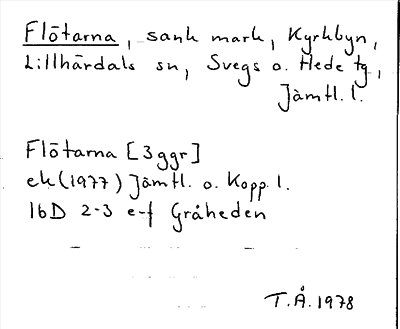 Flōtarna, sank mark, Kyrkbyn,
Lillhärdals sn, Svegs o. Hede tg,
Jämtl. l.
Flōtarna [3ggr]
ek (1977) Jämtl. o. Kopp. l.
16D 2-3 e-f Gråheden
T.Å. 1978